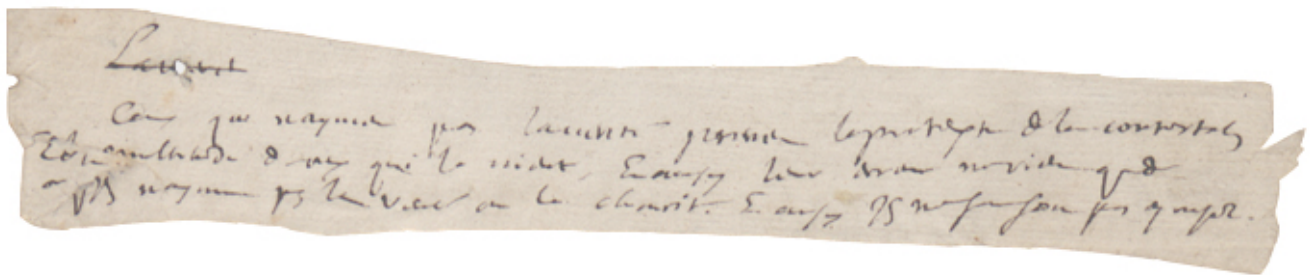 La verité
Ceux qui n'ayment pas la verité prennent le pretexte de la contestation
Et la multitude de ceux qui la nient, Et ainsy leur erreur ne vient que de
ce qu'ils n'ayment pas la verité ou la charité. Et ainsy ils ne s'en sont pas